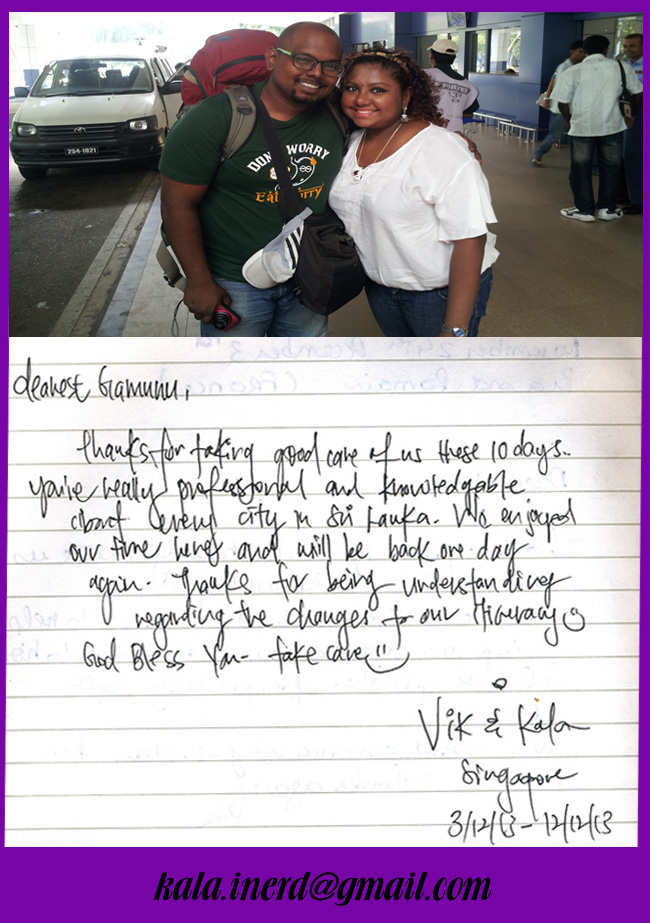 254-1821
WORRY
dearest Gamunu,
Thanks for taking good care of us these 10 days..
You're really professional and knowledgable
about every city in Sri Lanka. We enjoyed
our time here and will be back one day
again. Thanks for being understanding
regarding the changes to our itineracy
God Bless You - take care
Vik & Kala
Singapore
3/12/13 - 12/12/13
kala.inerd@gmail.com